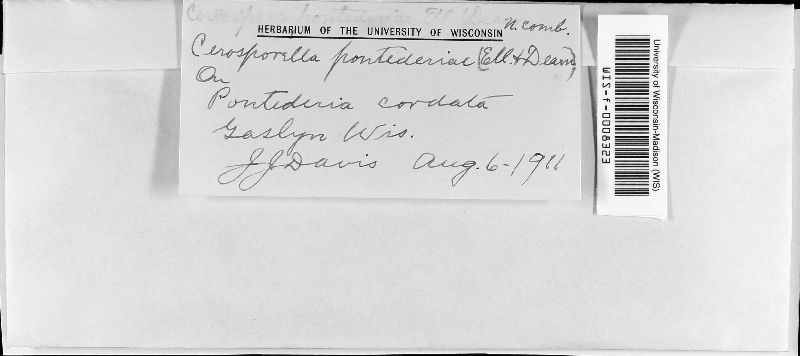 HERBARIUM OF THE UNIVERSITY OF WISCONSIN n. comb.
Cerosporella pontederiae (Ell. & Dearn)
On
Pontederia cordata
Gaslyn Wis.
J J Davis Aug. 6-1911
University of Wisconsin-Madison (WIS)
WIS-f-0008323